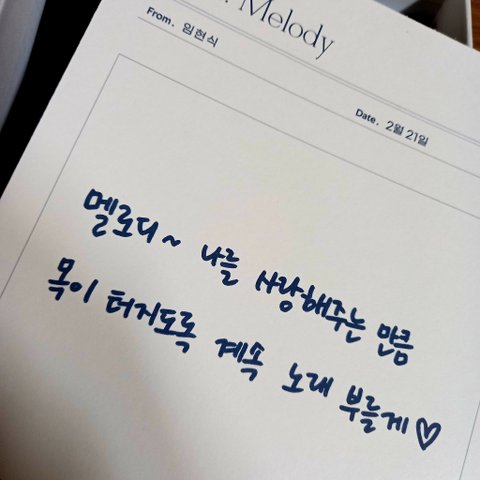 Melody
From. 임현식
Date. 2월 21일
멜로디~ 나를 사랑해주는 만큼
목이 터지도록 계속 노래 부를게♡